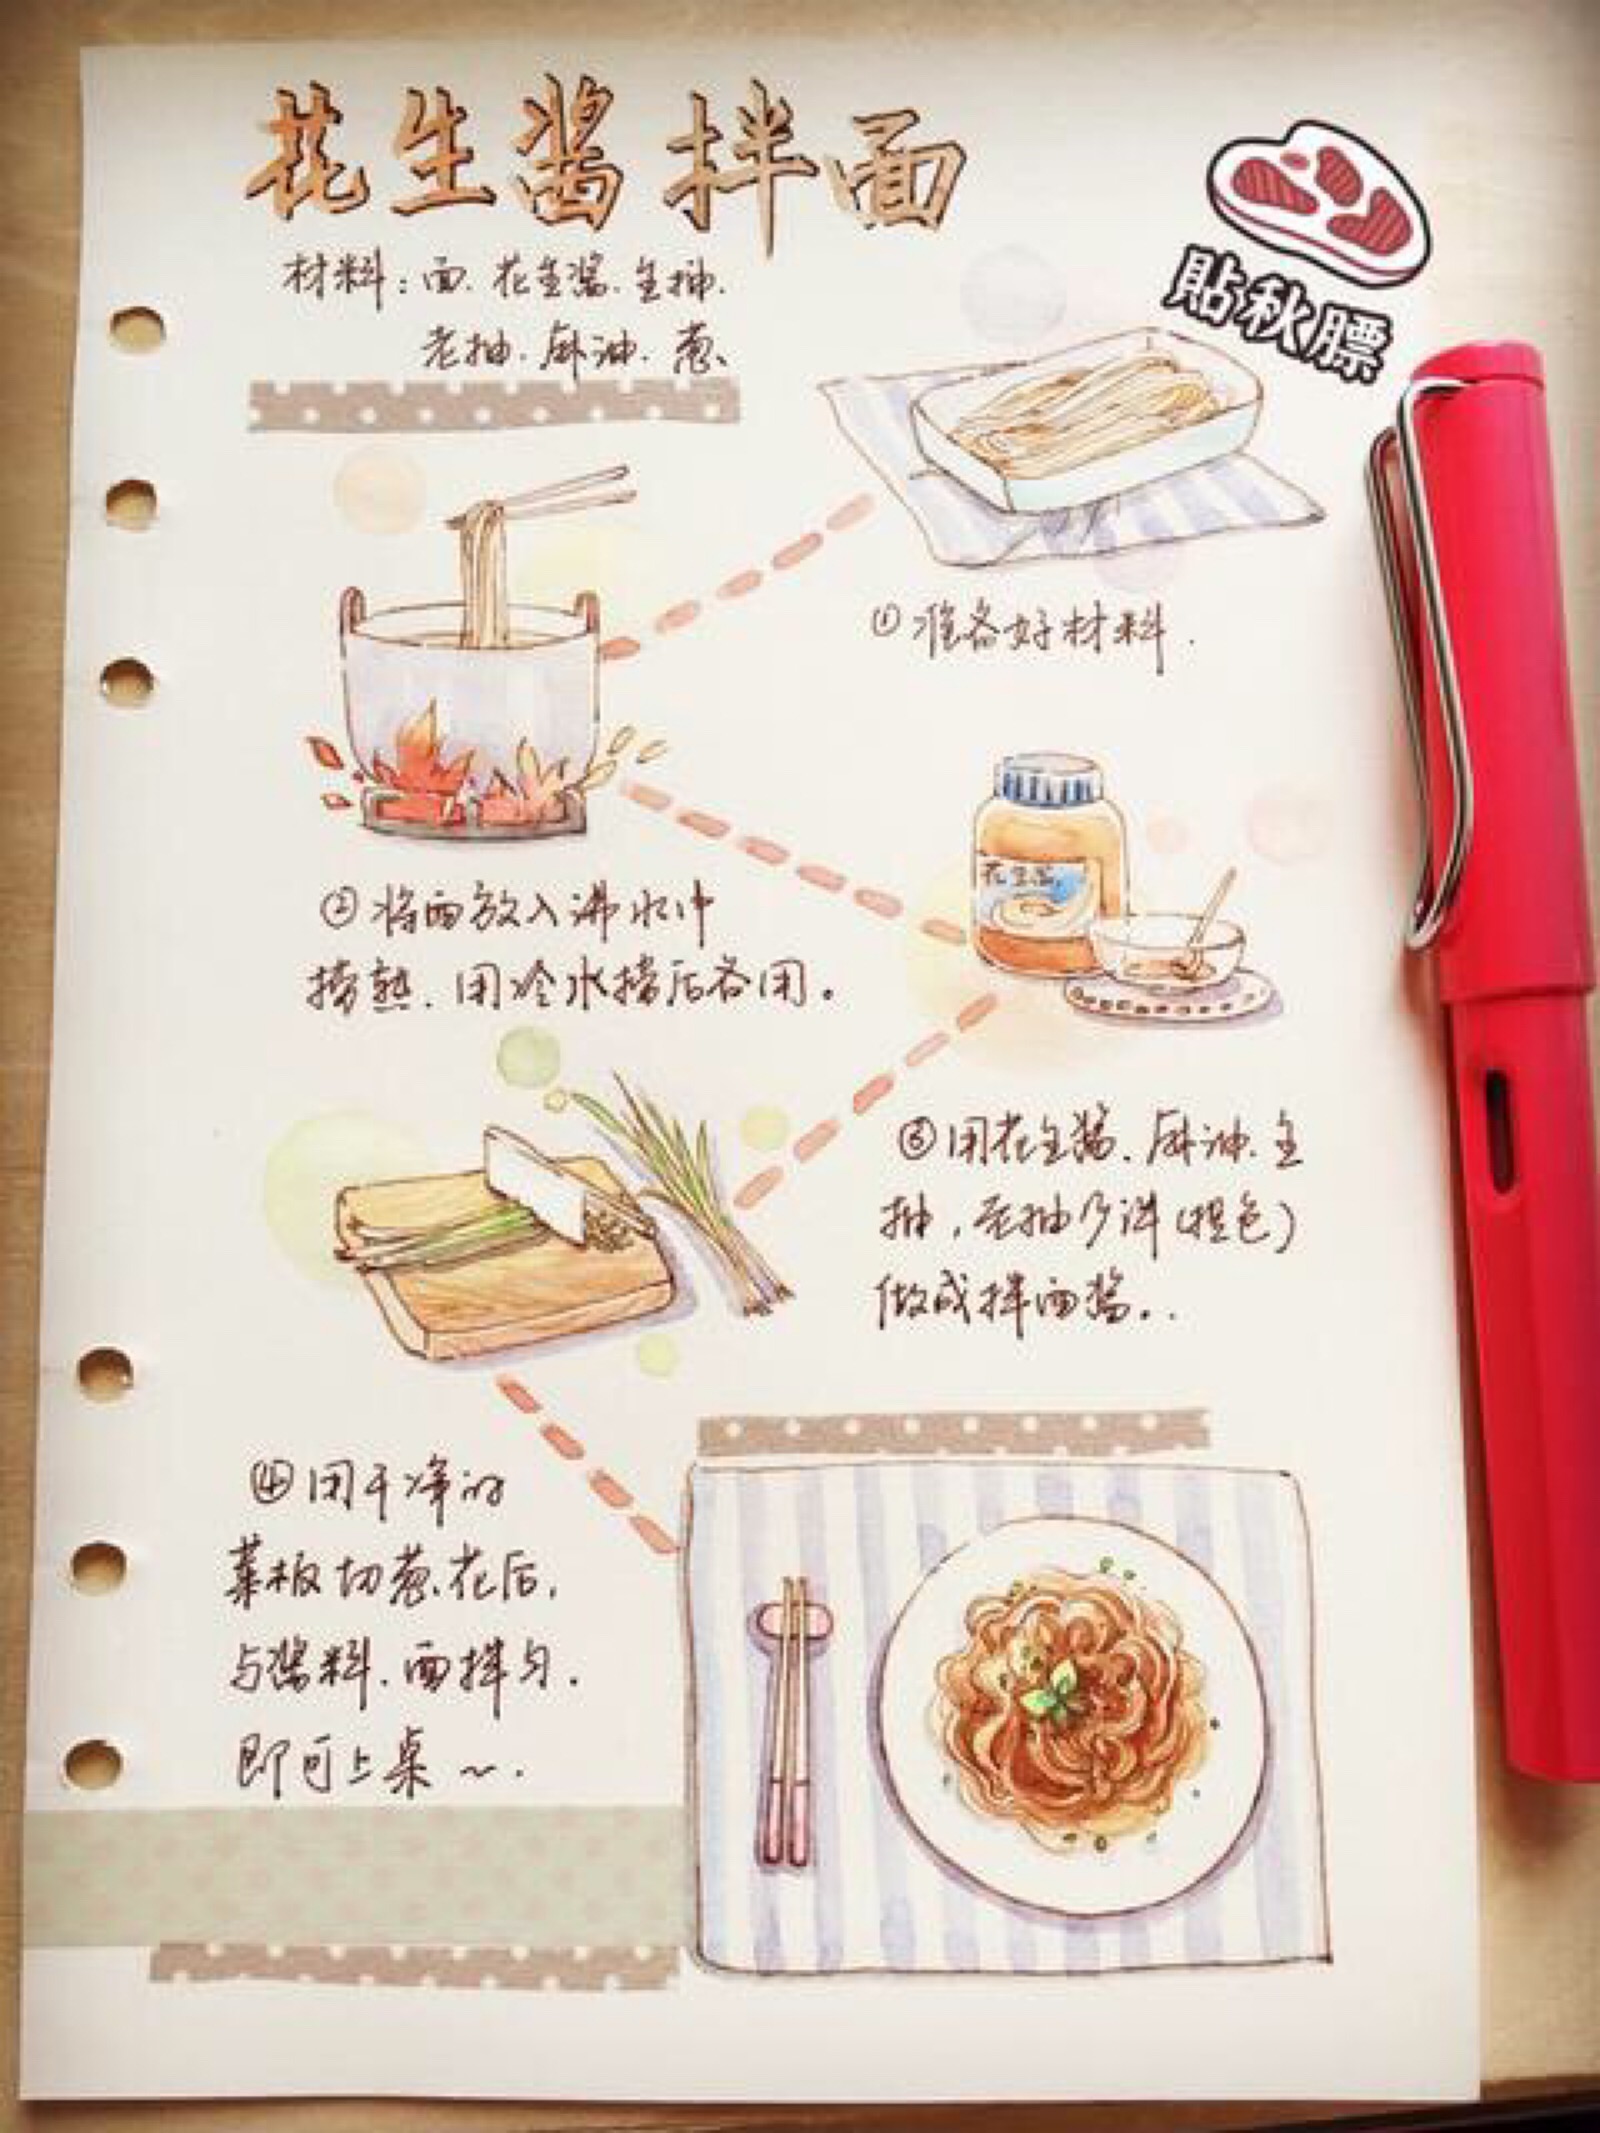 花生酱拌面
材料：面、花生酱、生抽、
老抽、麻油、葱、
貼秋膘
①准备好材料.
②将面放入沸水中
捞熟、用冷水捞后备用。
花生酱
③用花生酱、麻油、生
抽，老抽少许(提色)
做成拌面酱。.
④用干净的
菜板切葱花后,
与酱料、面拌匀.
即可上桌~.